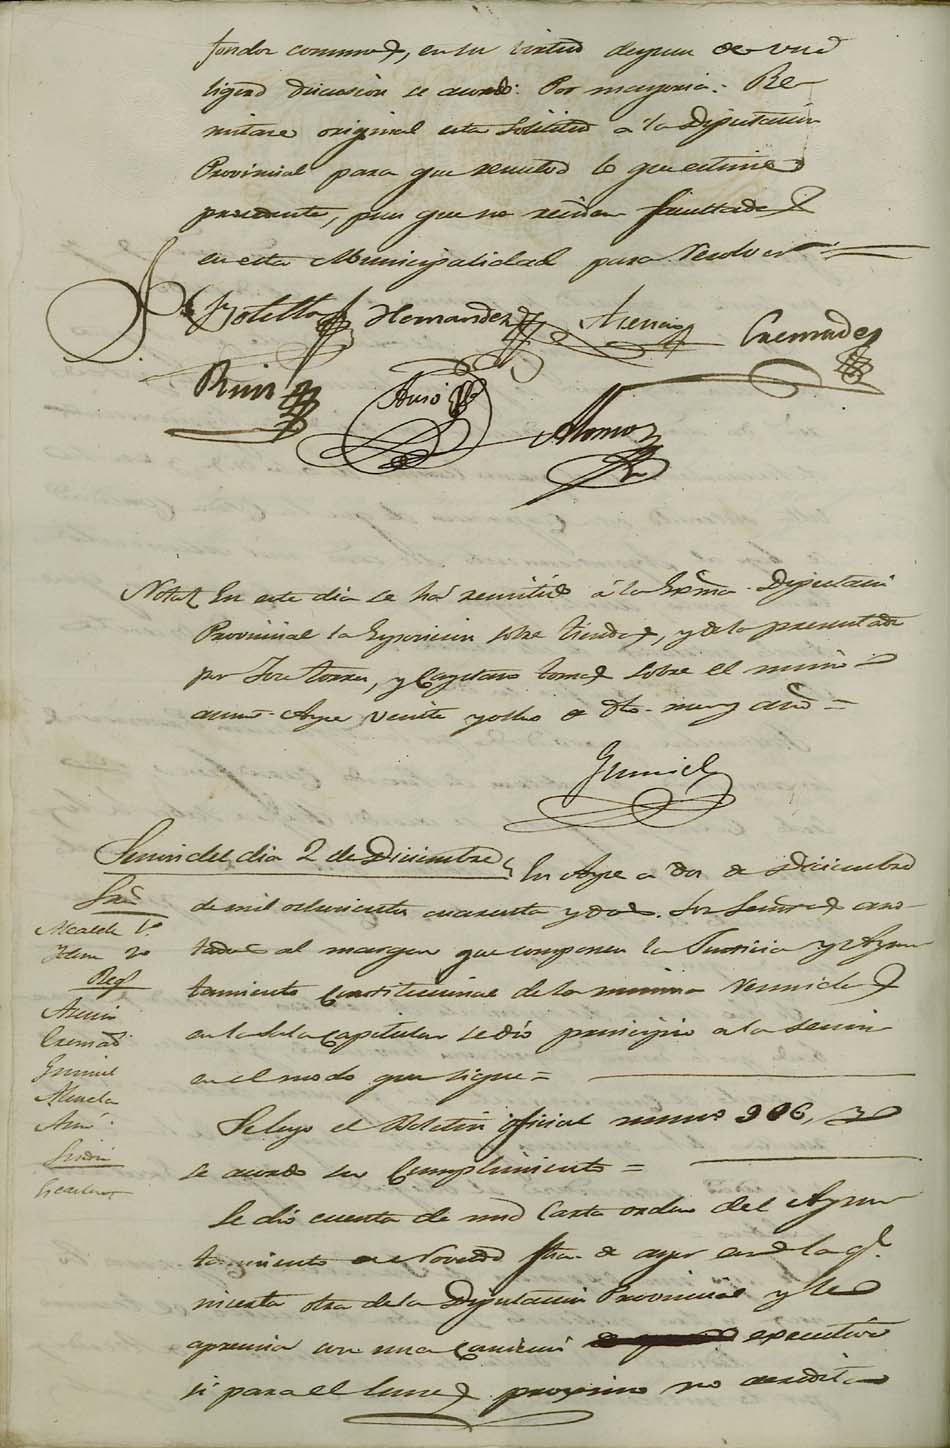 fondos comunes, en su virtud despues de una
ligera discusion se acordó: Por mayoria: Re-
mitase original esta solicitud a la Diputacion
Provincial para que resuelva lo que estime
procedente, pues que no residen facultades
en esta Municipalidad para resolver =
Botella Hernandez Asencio Cremades
Ruiz Aznar Alonso
Nota En este dia se há remitido á la Exma. Diputacion
Provincial la Exposicion sobre tiendas, y de la presentada
por Jose Torres, y Cayetano Tomas sobre el mismo
asunto. Aspe veinte y ocho de dho. mes y año =
Gumiel
Sesion del dia 2 de Diciembre En Aspe a dos de Diciembre
de mil ochocientos cuarenta y dos. Los Señores ano-
tados al margen que componen la Justicia y Ayun-
tamiento Constitucional de la misma reunidos
en la Sala Capitular se dió principio a la sesion
en el modo que sigue =
Sres.
Alcalde 1º
Idem 2º
Reg.
Asencio
Cremads
Gumiel
Almela
Sindico
Se leyó el Boletin oficial numº 906, y
se acordó su Cumplimiento =
Se dió cuenta de una Carta orden del Ayun-
tamiento de Novelda fha. de ayer en la ql.
inserta otra de la Diputacion Provincial y le
apremia con una Comision ejecutiva
si para el lunes proximo no acredita